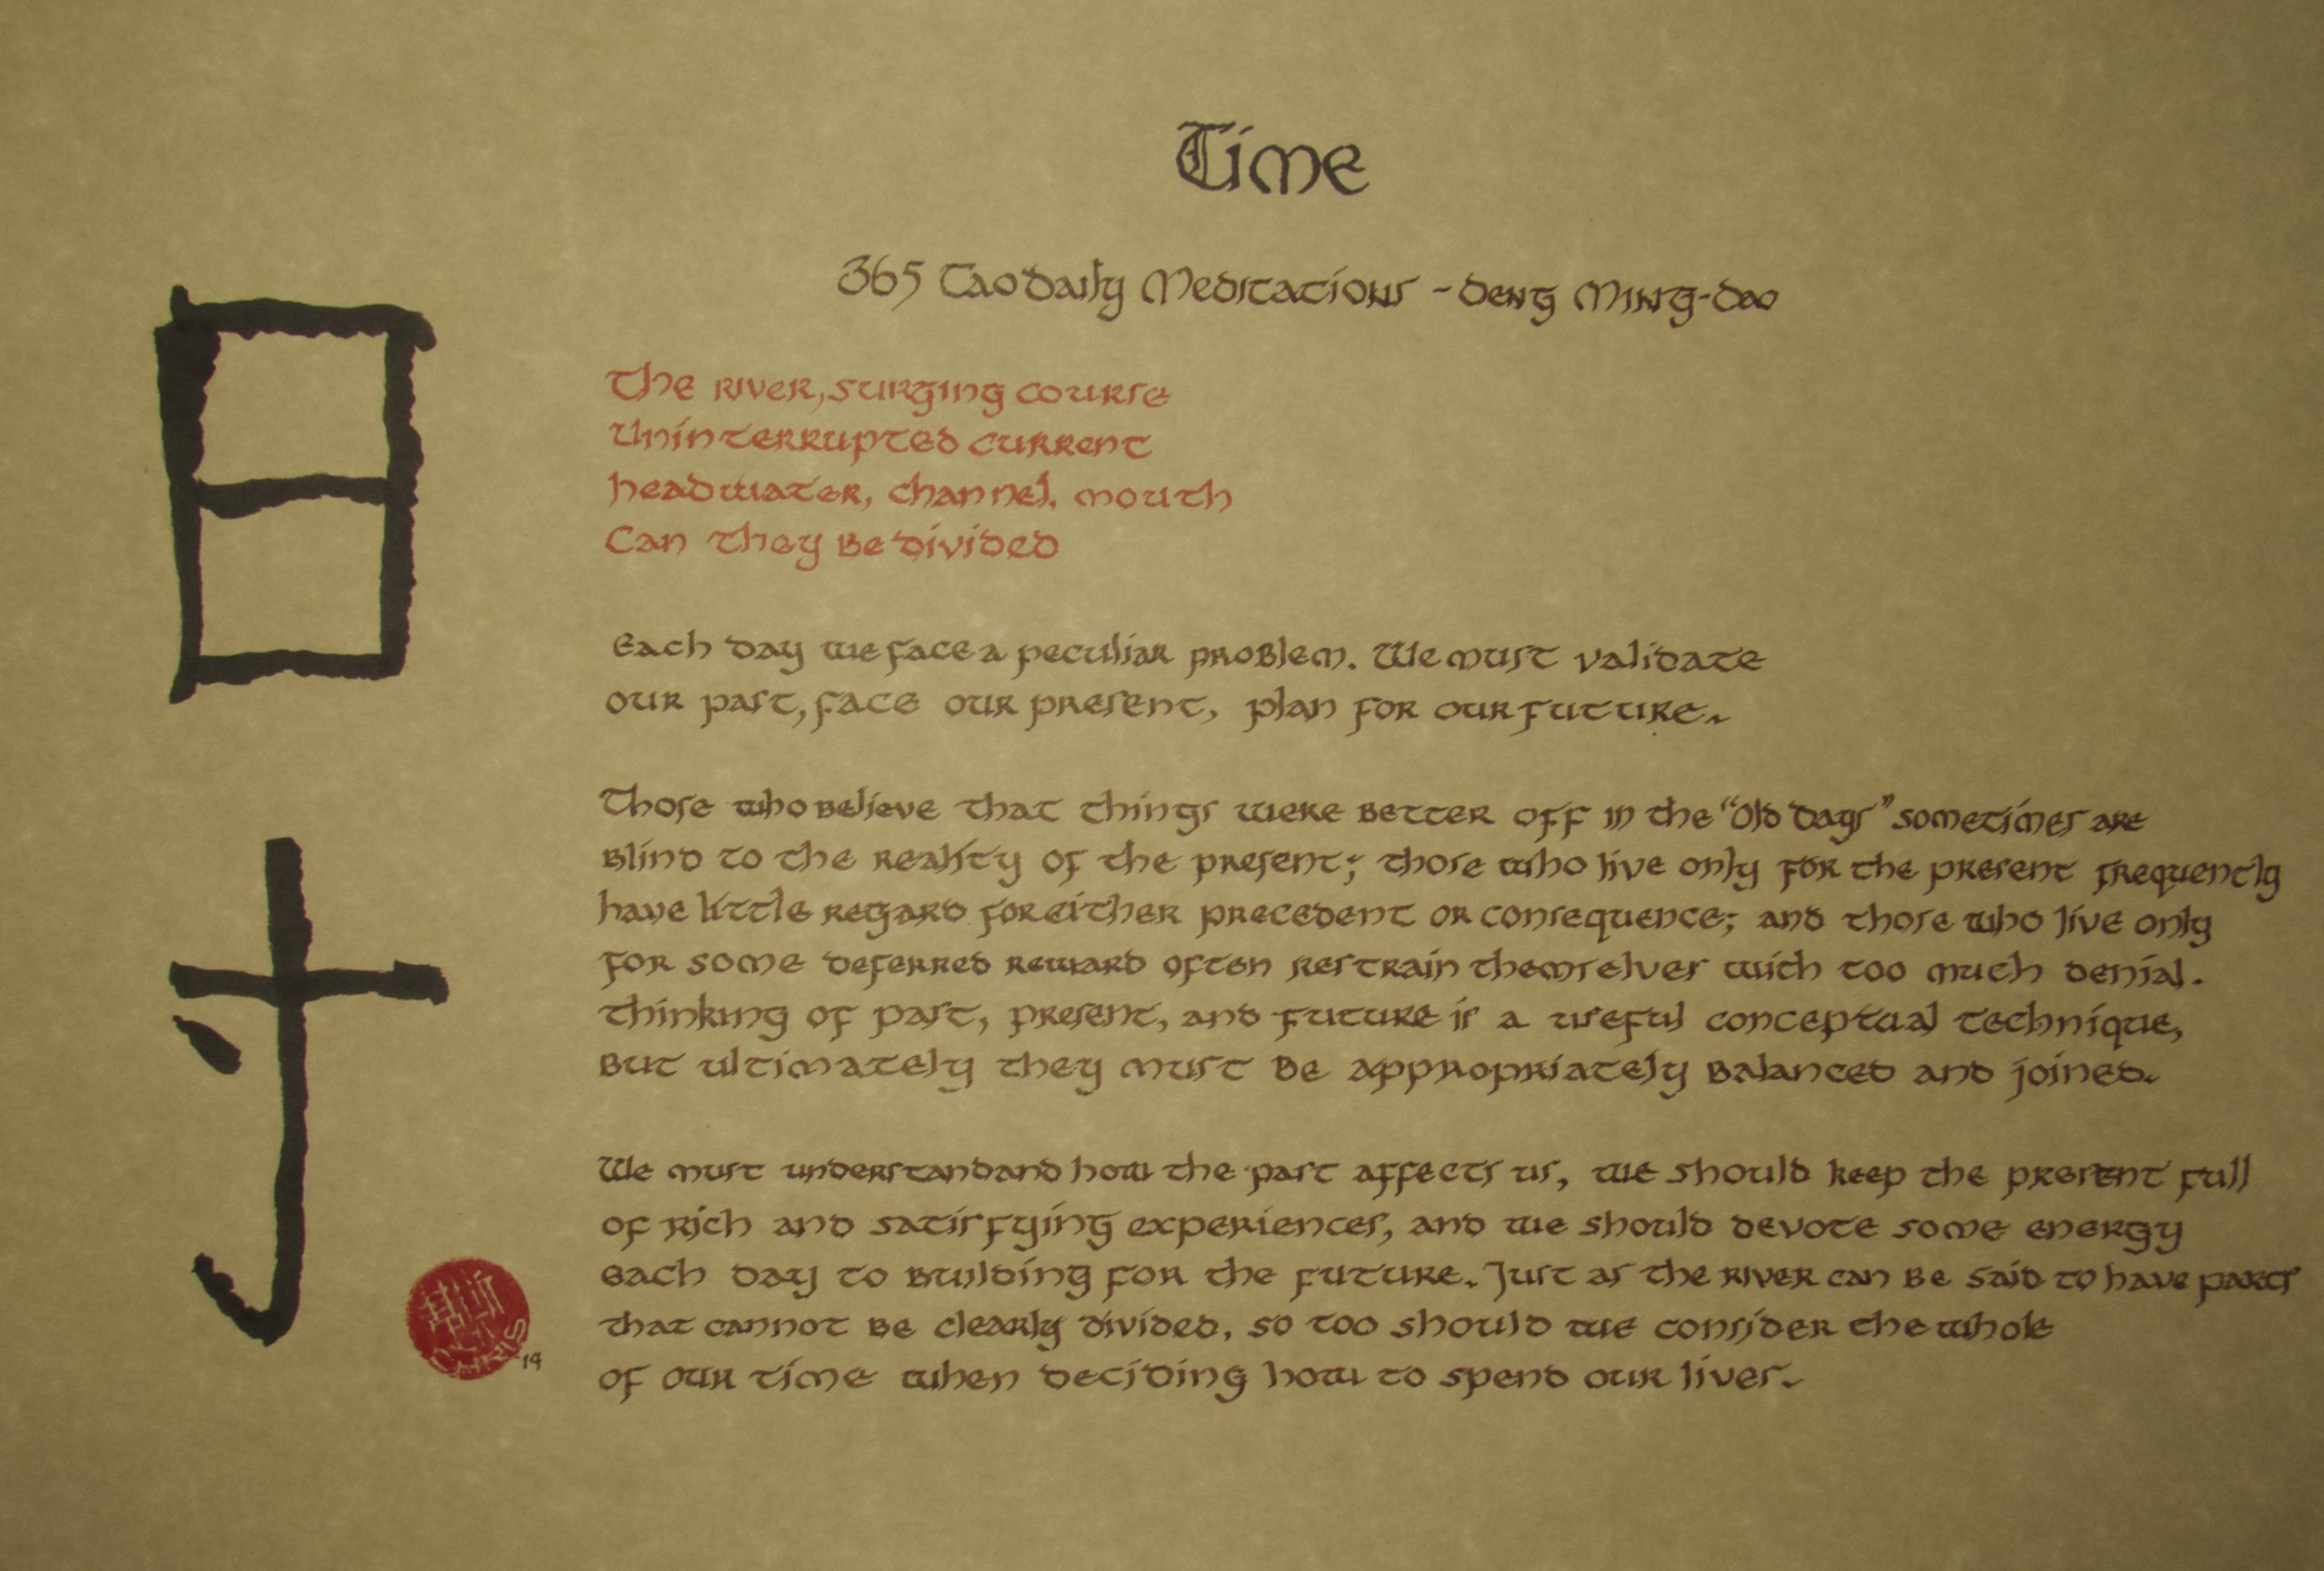 Time
365 Tao daily Meditations - Deng Ming-dao
日
寸
The river, surging course
Uninterrupted current
headwater, channel, mouth
Can they be divided
Each day we face a peculiar problem. We must validate
our past, face our present, plan for our future.
Those who believe that things were better off in the "Old Days" sometimes are
blind to the reality of the present; those who live only for the present frequently
have little regard for either precedent or consequence; and those who live only
for some deferred reward often restrain themselves with too much denial.
Thinking of past, present, and future is a useful conceptual technique,
but ultimately they must be appropriately balanced and joined.
We must understandand how the past affects us, we should keep the present full
of rich and satisfying experiences, and we should devote some energy
each day to building for the future. Just as the river can be said to have parts
that cannot be clearly divided, so too should we consider the whole
of our time when deciding how to spend our lives.